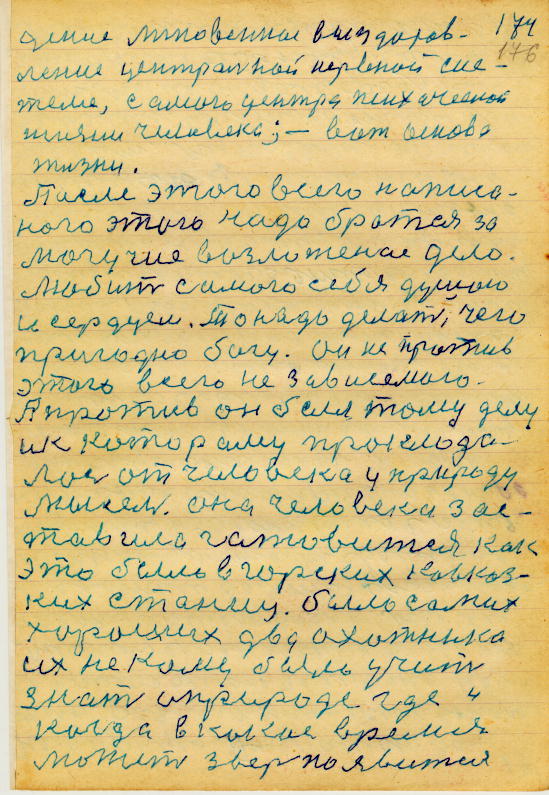 дение мгновенное выздоров- 174
176
ление центральной нервной сис-
теме, самого центра психической
жизни человека; – вот основа
жизни.
После этого всего написа-
ного этого надо братся за
могучие возложеное дело.
Любит самого себя душою
и сердцем. То надо делат, чего
пригодно богу. Он не против
этого всего не зависемого.
А против он был тому делу
ик котораму проислода-
лоя от человека у природу
мысем. она человека зас-
тавила гатовится как
это было вгорских кавказ-
ких станиц. было самих
хороших два охотника
их некому было учит
знат оприроде где и
когда вкакое время
может звер появится